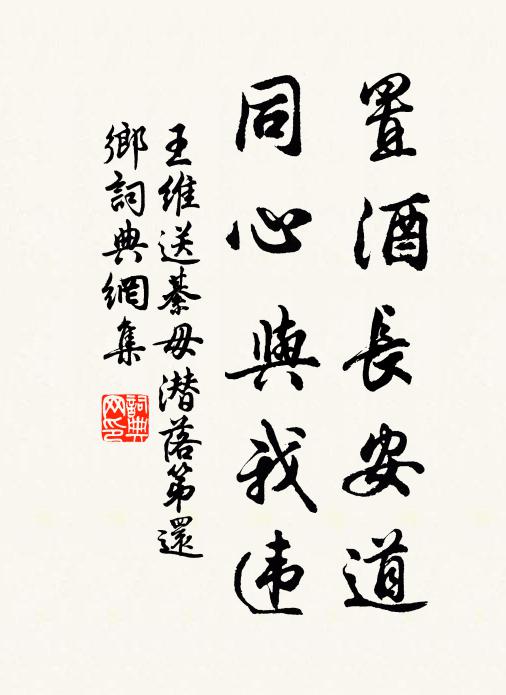 置酒長安道
同心與我违
王維送綦毋潜落第還
鄉詞典網集
詞典
网印